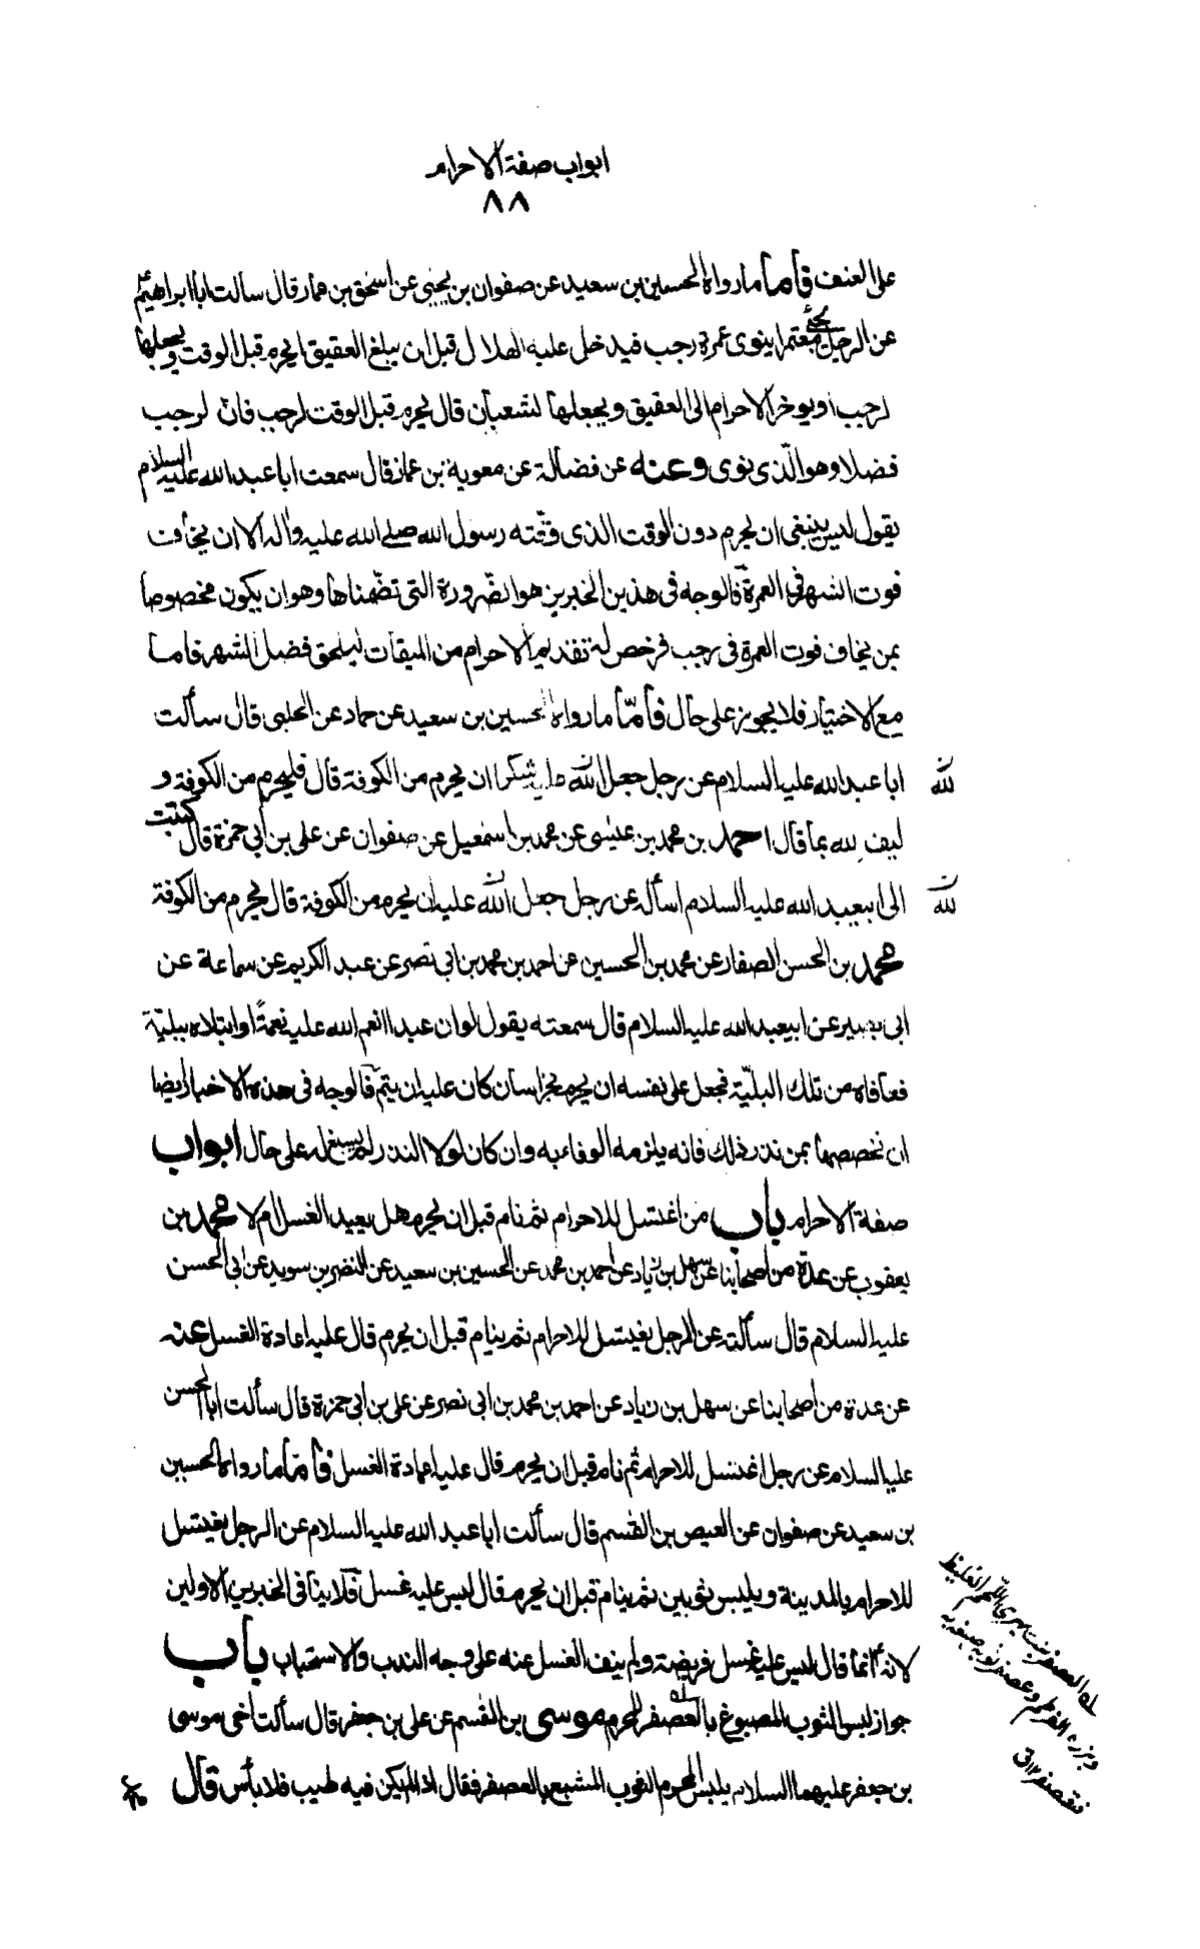 ابواب صفة الاحرام
٨٨
على العنف فأما ما رواه الحسين بن سعيد عن صفوان بن يحيى عن اسحق بن عمار قال سالت ابا ابراهيم ع
عن الرجل يجئ معتمرا ينوى عمرة رجب فيدخل عليه الهلال قبل ان يبلغ العقيق ايحرم قبل الوقت ويجعلها
لرجب او يوخر الاحرام الى العقيق ويجعلها لشعبان قال يحرم قبل الوقت لرجب فان لرجب
فضلا وهو الذى نوى وعنه عن فضالة عن معوية بن عمار قال سمعت ابا عبد الله عليه السلام
يقول ليس ينبغى ان يحرم دون الوقت الذى وقته رسول الله صلى الله عليه واله الا ان يخاف
فوت الشهر فى العمرة فالوجه فى هذين الخبرين هو الضرورة التى تضمناها وهو ان يكون مخصوصا
بمن يخاف فوت العمرة فى رجب فرخص له تقديم الاحرام من الميقات ليلحق فضل الشهر فاما
مع الاختيار فلا يجوز على حال فأمّا ما رواه الحسين بن سعيد عن حماد عن الحلبى قال سألت
ابا عبد الله عليه السلام عن رجل جعل الله عليه شكرا ان يحرم من الكوفة قال فليحرم من الكوفة و
لله ن
ليف لله بما قال احمد بن محمد بن عيسى عن محمد بن اسمعيل عن صفوان عن على بن ابى حمزة قال كتبت
الى ابيعبد الله عليه السلام اسأله عن رجل جعل الله عليه ان يحرم من الكوفة قال يحرم من الكوفة
لله ن
محمد بن الحسن الصفار عن محمد بن الحسين عن احمد بن محمد بن ابى نصر عن عبد الكريم عن سماعة عن
ابى بصير عن ابيعبد الله عليه السلام قال سمعته يقول لو ان عبدا انعم الله عليه نعمةً او ابتلاه ببليّة
فعافاه من تلك البليّة فجعل على نفسه ان يحرم بخراسان كان عليه ان يتمّ فالوجه فى هذه الاخبار ايضا
ان نخصصها بمن نذر ذلك فانه يلزمه الوفاء به وان كان لولا النذر لم يسغ له على حال ابواب
صفة الاحرام باب من اغتسل للاحرام ثم نام قبل ان يحرم هل يعيد الغسل ام لا محمد بن
يعقوب عن عدة من اصحابنا عن سهل بن زياد عن احمد بن محمد عن الحسين بن سعيد عن النضر بن سويد عن ابى الحسن
عليه السلام قال سألته عن الرجل يغتسل للاحرام ثم ينام قبل ان يحرم قال عليه اعادة الغسل عنه
عن عدة من اصحابنا عن سهل بن زياد عن احمد بن محمد بن ابى نصر عن على بن ابى حمزة قال سألت ابا الحسن
عليه السلام عن رجل اغتسل للاحرام ثم نام قبل ان يحرم قال عليه اعادة الغسل فأمّا ما رواه الحسين
بن سعيد عن صفوان عن العيص بن القسم قال سألت ابا عبد الله عليه السلام عن الرجل يغتسل
للاحرام بالمدينة ويلبس ثوبين ثم ينام قبل ان يحرم قال ليس عليه غسل فلا ينافى الخبرين الاولين
لانه انما قال ليس عليه غسل فريضة ولم ينف الغسل عنه على وجه الندب والاستحباب باب
جواز لبس الثوب المصبوغ بالعصفر للمحرم موسى بن القسم عن على بن جعفر قال سألت اخى موسى
بن جعفر عليهما السلام يلبس المحرم الثوب المشبع بالعصفر فقال اذا لم يكن فيه طيب فلا بأس قال
له العصفر نبت يهرى اللحم الغليظ
وبزره القرطم وعصفر ثوبه صبغه به
فتعصفر ١٢ ق